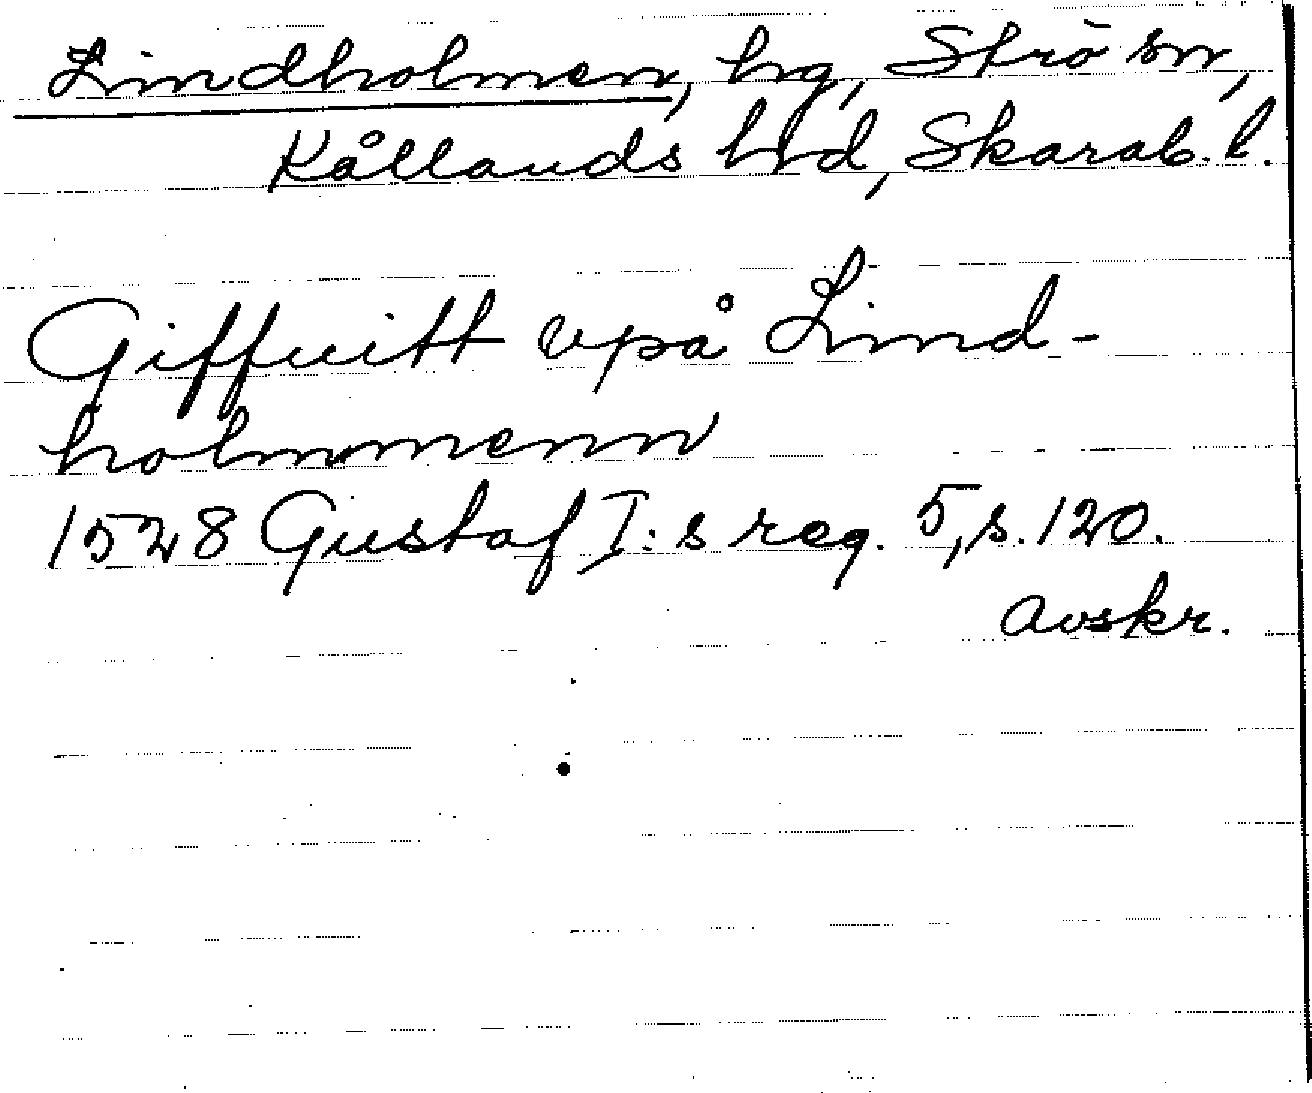 Lindholmen, hg, Strö sn,
Kållands hd, Skarab. l.
Giffuitt vpå Lind-
holmmenn
1528 Gustaf I:s reg. 5, s. 120.
avskr.